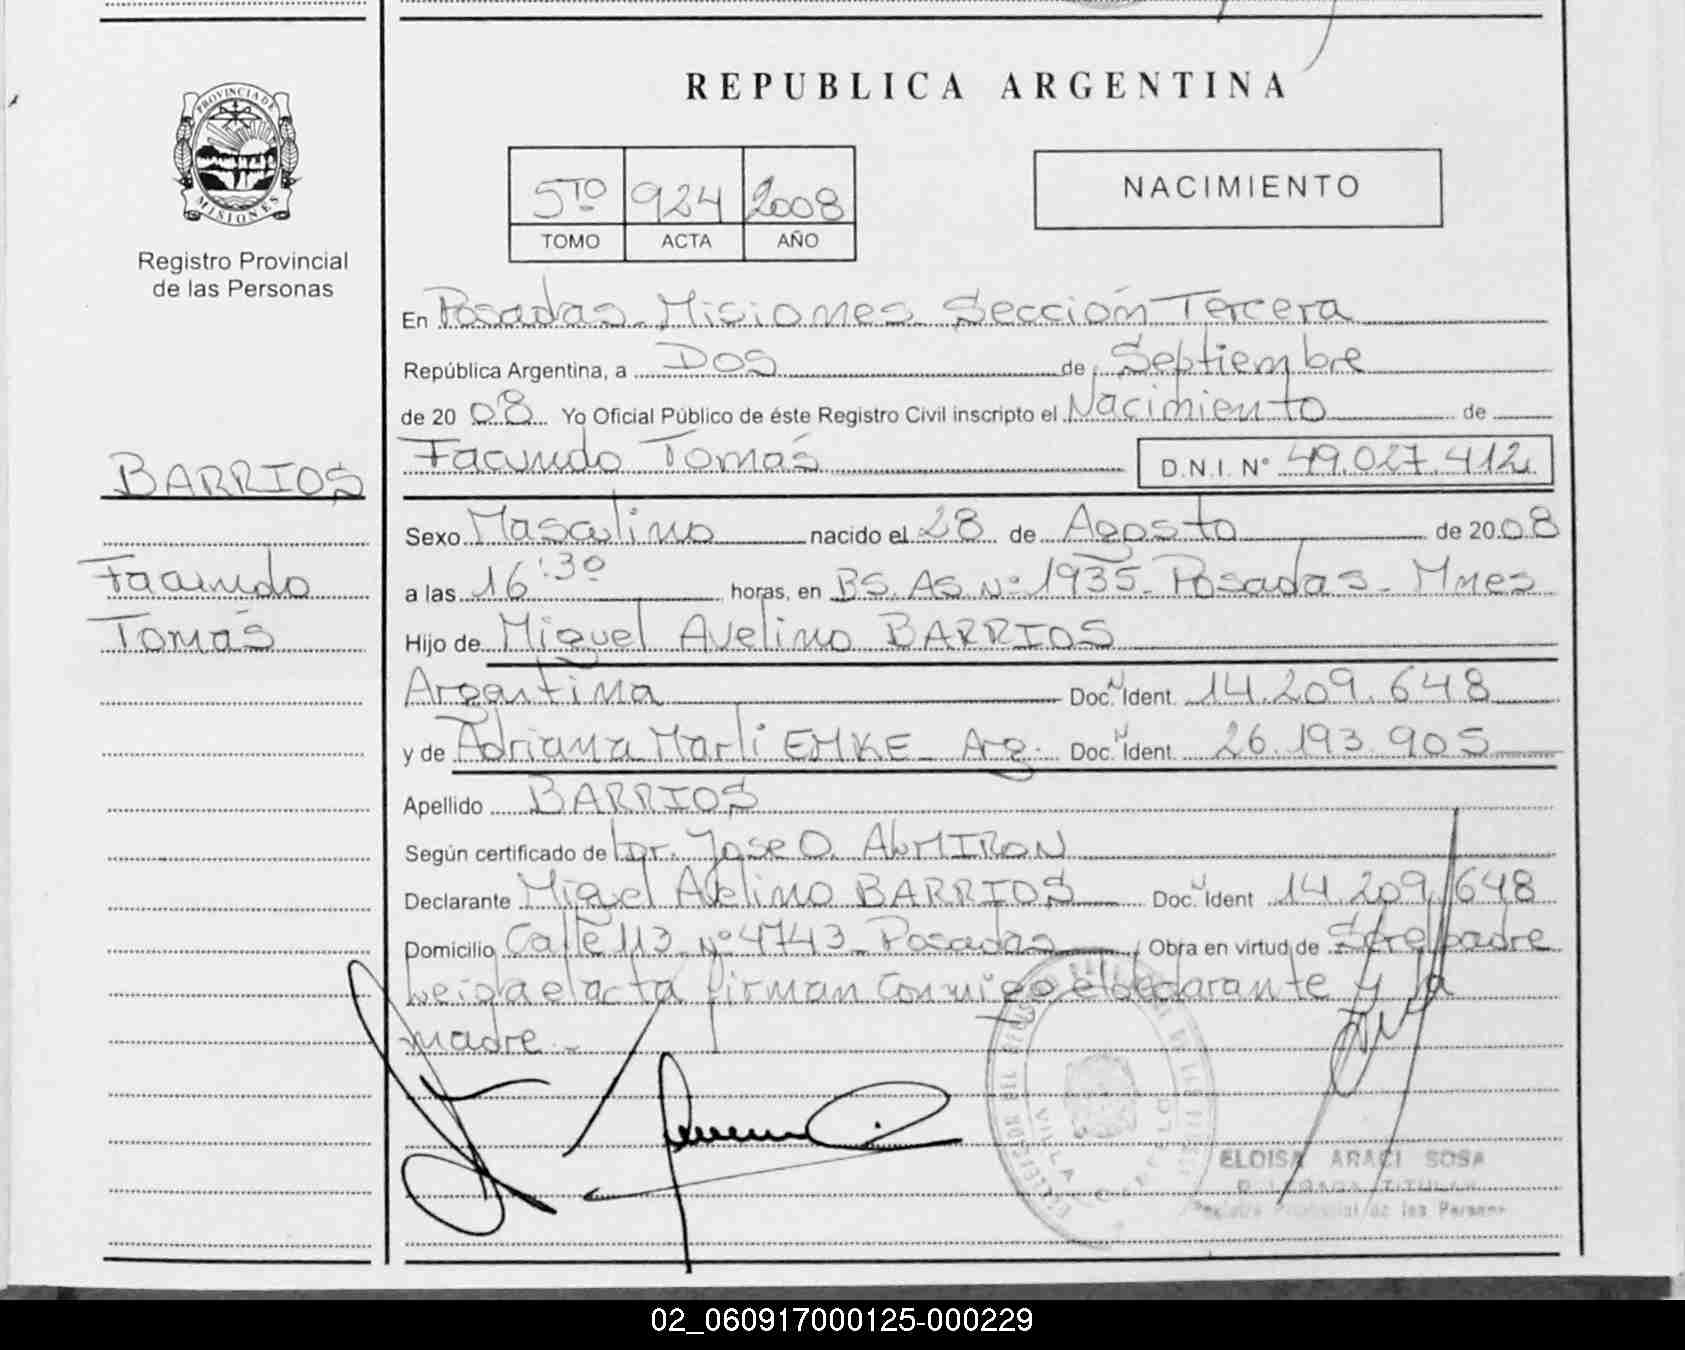 REPUBLICA ARGENTINA
PROVINCIA DE MISIONES
Registro Provincial
de las Personas
5TO 924 2008
TOMO ACTA AÑO
NACIMIENTO
En Posadas - Misiones Sección Tercera
República Argentina, a Dos de Septiembre
de 2008 Yo Oficial Público de éste Registro Civil inscripto el Nacimiento de
Facundo Tomás D.N.I. N° 49.027.412
BARRIOS
Facundo
Tomás
Sexo Masculino nacido el 28 de Agosto de 2008
a las 16:30 horas, en BS. AS. N° 1935 - Posadas - Mnes
Hijo de Miguel Avelino BARRIOS
Argentina Doc. N Ident. 14.209.648
y de Adriana Marli EMKE - Arg. Doc. N Ident. 26.193.905
Apellido BARRIOS
Según certificado de Dr. Jose O. ALMIRON
Declarante Miguel Avelino BARRIOS Doc. N Ident 14.209.648
Domicilio Calle 113 N° 4743 - Posadas Obra en virtud de Ser el padre
Leida el acta firman conmigo el declarante y la
madre. -
VILLA CABELLO
ELOISA ARACI SOSA
TITULAR
Registro Provincial de las Personas
02_060917000125-000229